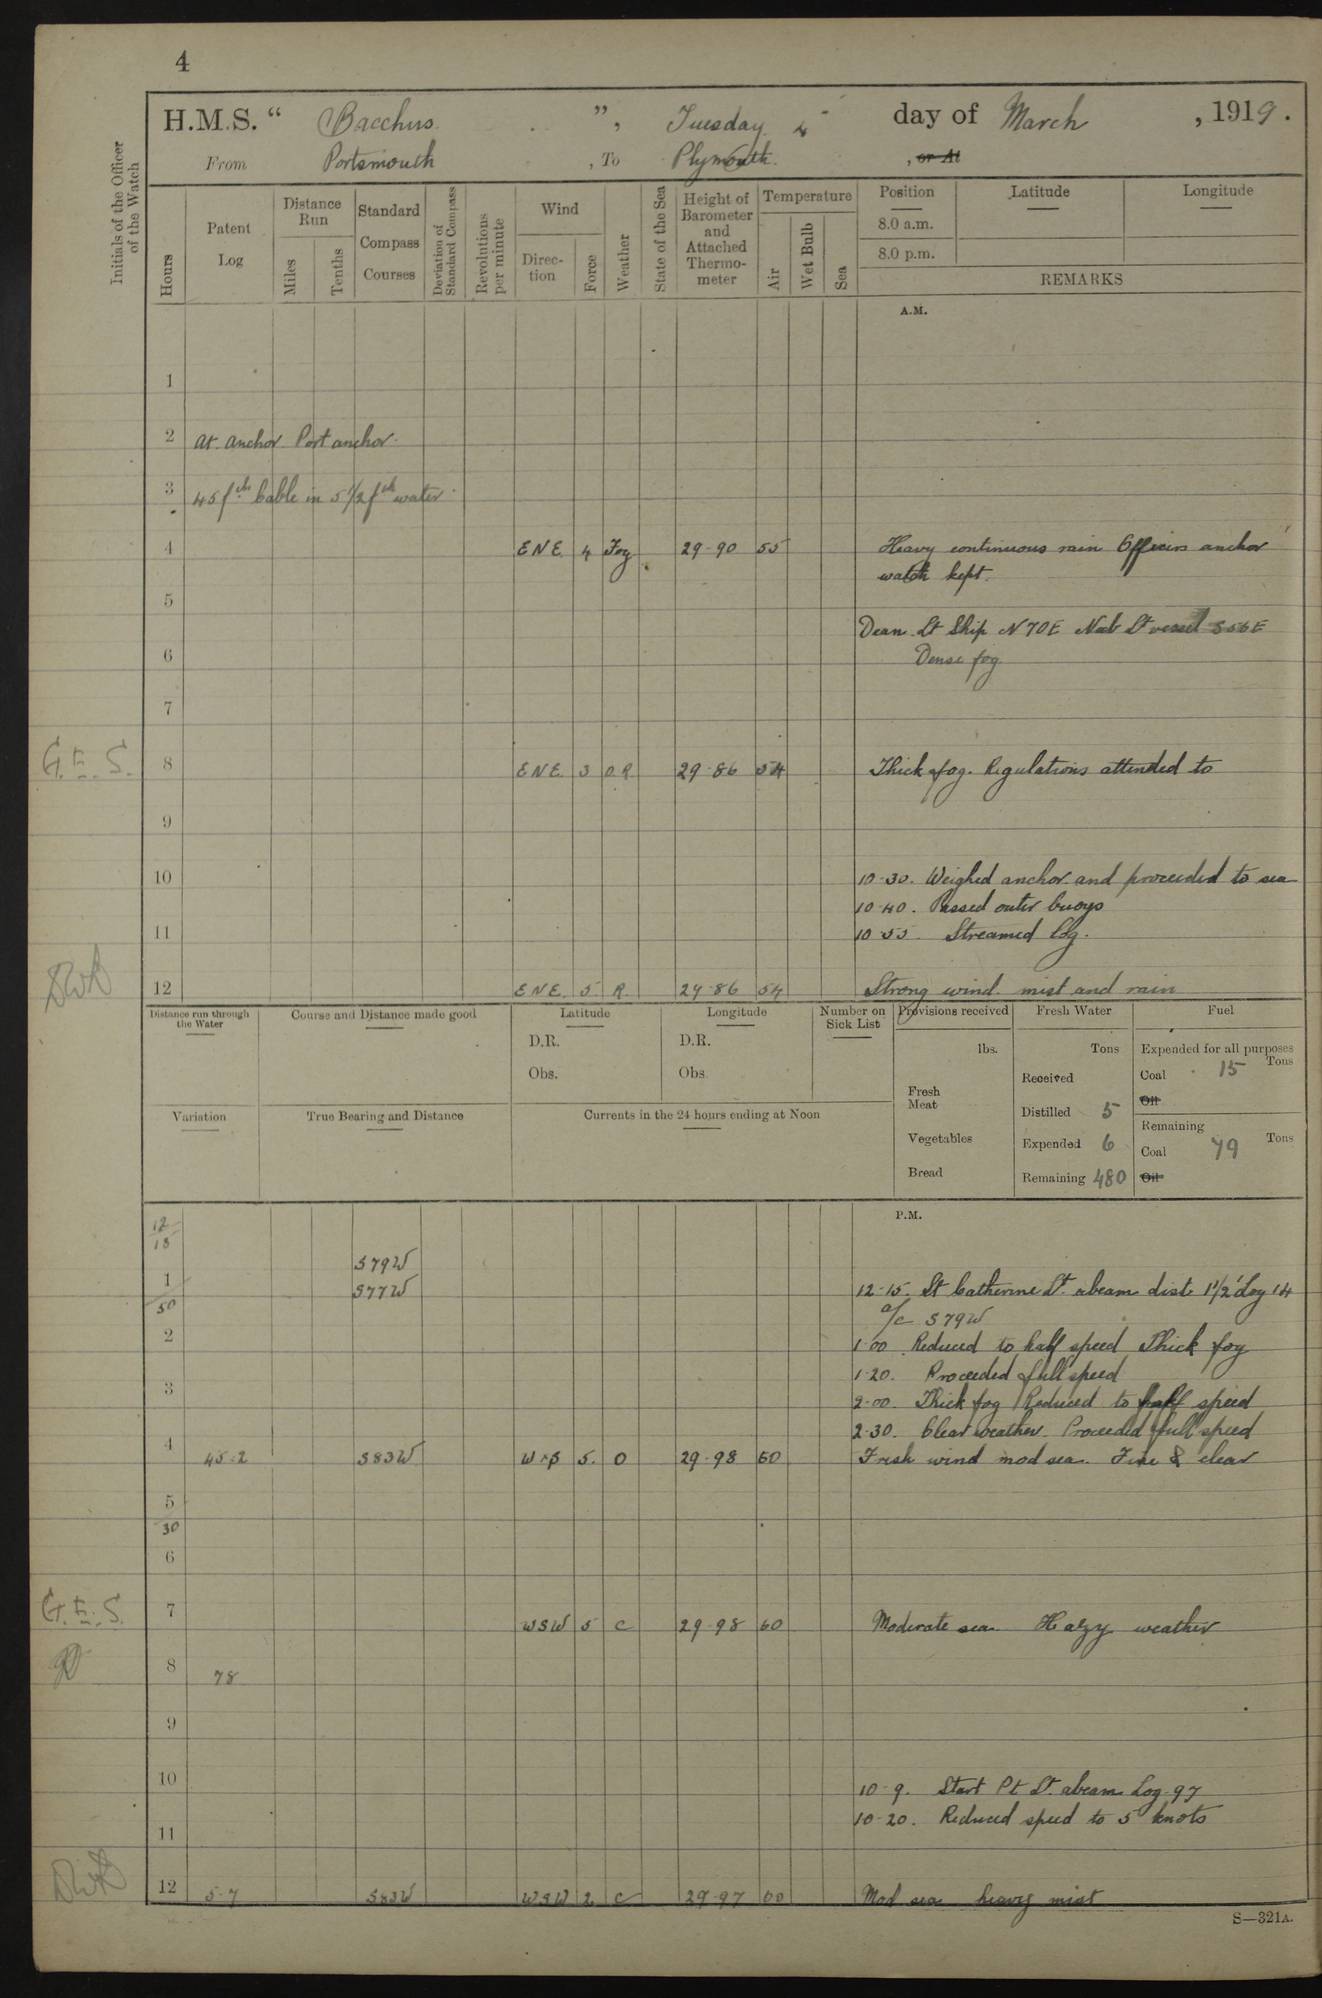 4
H.M.S. " Bacchus ", Tuesday 4th day of March, 1919.
From Portsmouth, To Plymouth, or At
Initials of the Officer of the Watch
Hours
Patent Log
Distance Run
Miles
Tenths
Standard Compass Courses
Deviation of Standard Compass
Revolutions per minute
Wind
Direction
Force
Weather
State of the Sea
Height of Barometer and Attached Thermometer
Temperature
Air
Wet Bulb
Sea
Position
Latitude
Longitude
8.0 a.m.
8.0 p.m.
REMARKS
A.M.
1
2 At anchor Port anchor
3 45 fth Cable in 5 1/2 fth water
4 ENE 4 Fog 29-90 55 Heavy continuous rain Officers anchor
watch kept.
5
Dean Lt Ship N70E Nab Lt vessel S56E
6 Dense fog
7
G.E.S. 8 ENE 3 O.R 29-86 54 Thick fog. Regulations attended to
9
10 10-30. Weighed anchor and proceeded to sea
10-40. Passed outer buoys
11 10-55 Streamed log.
12 ENE. 5. R. 29-86 54 Strong wind mist and rain
Distance run through the Water
Course and Distance made good
Latitude
D.R.
Obs.
Longitude
D.R.
Obs.
Number on Sick List
Provisions received
lbs.
Fresh Meat
Vegetables
Bread
Fresh Water
Tons
Received
Distilled 5
Expended 6
Remaining 480
Fuel
Expended for all purposes
Tons
Coal 15
Oil
Remaining
Tons
Coal 79
Oil
Variation
True Bearing and Distance
Currents in the 24 hours ending at Noon
P.M.
12/15
S79W
1 S77W 12-15. St Catherine Lt. abeam dist 1 1/2' Log 14
50 a/c S79W
2 1-00 Reduced to half speed Thick fog
1-20. Proceeded full speed
3 2-00. Thick fog Reduced to half speed
2-30. Clear weather. Proceeded full speed
4 45.2 S83W WxS 5. O 29-98 60 Fresh wind mod sea. Fine & clear
5
30
6
G.E.S. 7 WSW 5 C 29-98 60 Moderate sea. Hazy weather
8 78
9
10 10-9. Start Pt Lt. abeam Log 97
10-20. Reduced speed to 5 knots
11
12 5-7 S83W WSW 2 C 29-97 60 Mod sea heavy mist
S—321A.